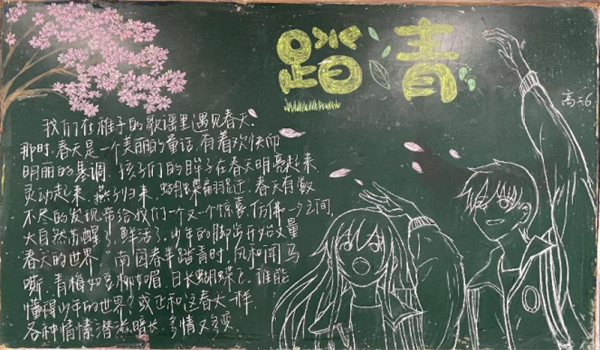 踏青
高二6
我们在稚子的歌谣里遇见春天
那时,春天是一个美丽的童话,有着欢快而
明丽的基调 孩子们的眸子在春天明亮起来,
灵动起来,燕子归来,蝴蝶翩翩近,春天有数
不尽的发现带给我们一个又一个惊喜,仿佛一夕之间,
大自然苏醒了,鲜活了,少年的脚步开始丈量
春天的世界 南园春半踏青时,风和闻马
嘶,青梅如豆柳如眉,日长蝴蝶飞,谁能
懂得少年的世界?或正和这春天一样
各种情愫潜滋暗长,多情又多变